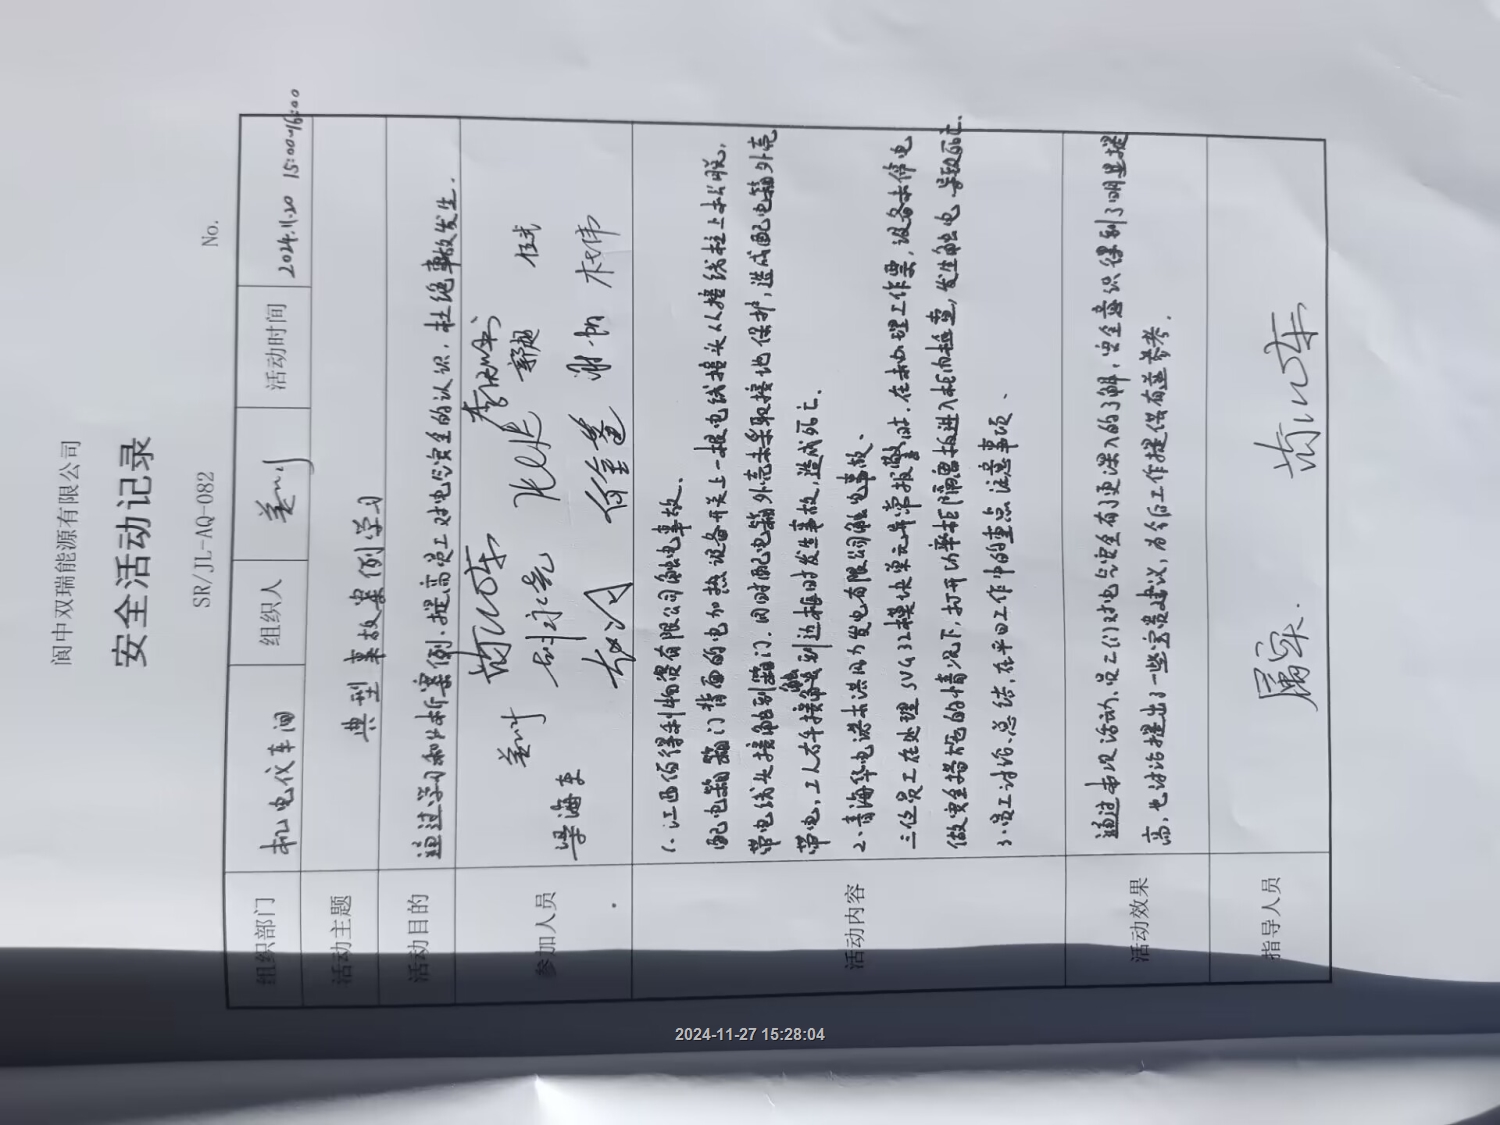 阆中双瑞能源有限公司
安全活动记录
SR/JL-AQ-082 No.
组织部门 机电仪车间 组织人 活动时间 2024.11.20 15:00-16:00
活动主题 典型事故案例学习
活动目的 通过学习和分析案例,提高员工对电气安全的认识,杜绝事故发生.
参加人员
郭超 任武
刘永亮
梁海军 谢帆 杜伟
活动内容
1、江西佰得利物资有限公司触电事故.
配电箱箱门背面的电加热设备开关上一根电线接头从接线柱上松脱,
带电线头接触到箱门.同时配电箱外壳未采取接地保护,造成配电箱外壳
带电,工人右手接触到边框时发生事故,造成死亡.
2、青海华电诺木洪风力发电有限公司触电事故、
三位员工在处理SVG32模块单元异常报警时.在未办理工作票,设备未停电
做安全措施的情况下,打开功率柜隔离挡进入柜内检查,发生触电,导致死亡.
3、员工讨论、总结,在平日工作中的重点注意事项、
活动效果
通过本次活动,员工们对电气安全有了更深入的了解,安全意识得到了明显提
高,也讨论提出了一些完善建议,为今后工作提供有益参考.
指导人员
2024-11-27 15:28:04